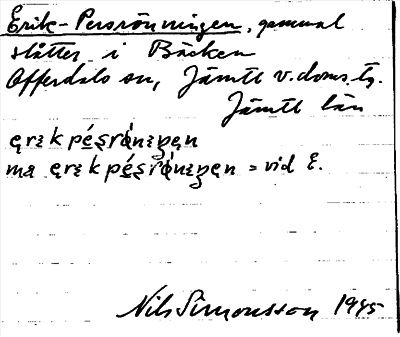 Erik-Persrönningen, gammal
slåtter i Backen
Offerdals sn, Jämtl v.doms.tg.
Jämtl län
ęrɛkpésrǫ́nɛŋęn
ma ęrɛkpésrǫ́nɛŋen = vid E.
Nils Simonsson 1945